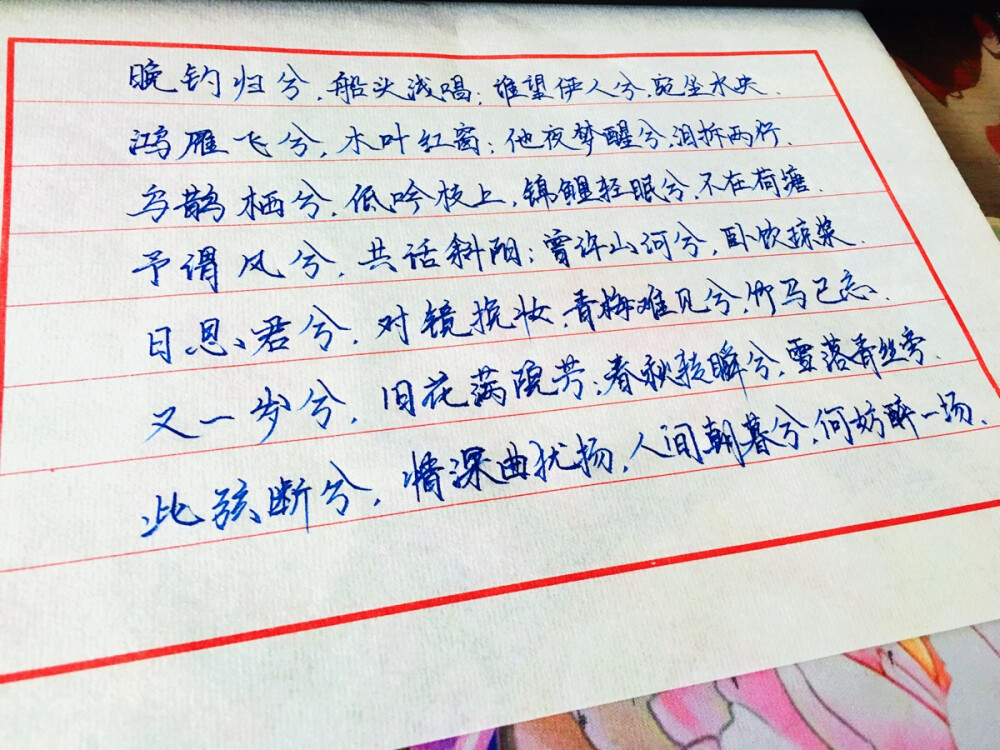 晚钓归兮，船头浅唱；谁望伊人兮，宛坐水央．
鸿雁飞兮，木叶红窗；他夜梦醒兮，泪拆两行．
乌鹊栖兮，低吟枝上，锦鲤轻眠兮，不在荷塘．
予谓风兮，共话斜阳；曾许山河兮，卧饮琼浆．
日思君兮，对镜挽妆，青梅难见兮，竹马已忘．
又一岁兮，旧花满院芳；春秋转瞬兮，雪落青丝旁．
此弦断兮，情深曲扰扬，人间朝暮兮，何妨醉一场．